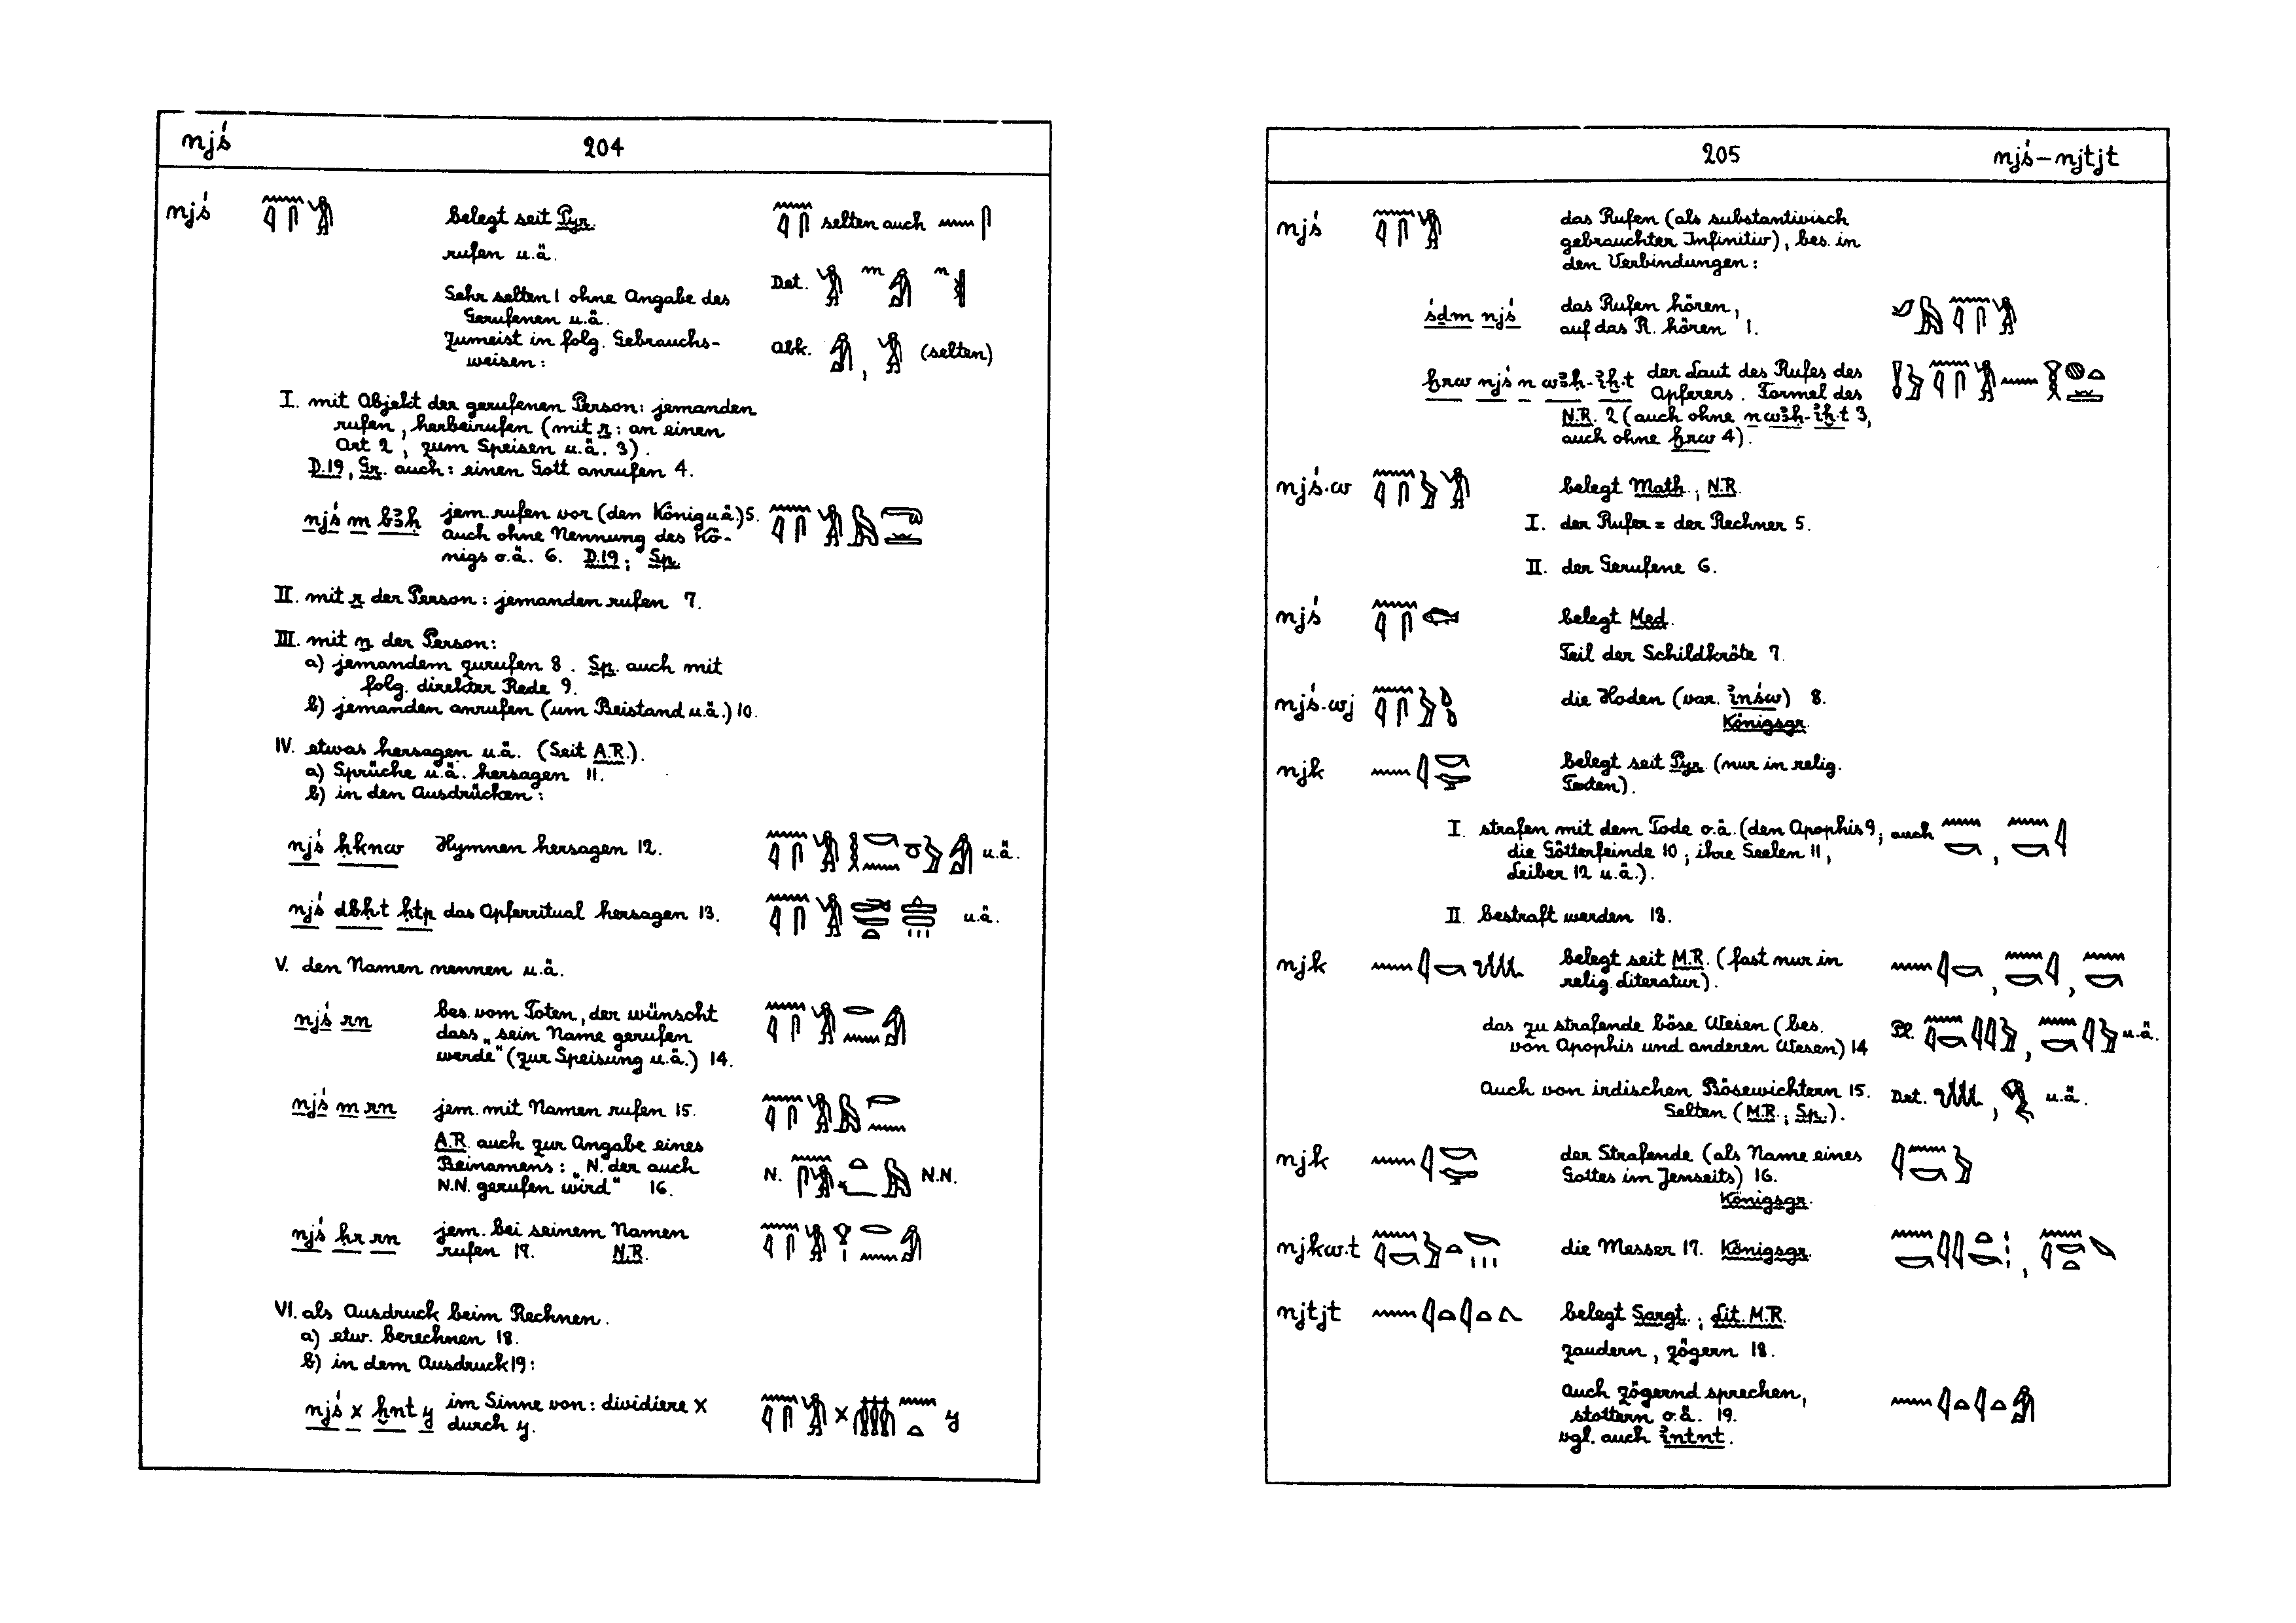 njś 204
njś belegt seit Pyr. selten auch
rufen u.ä. Det. m n
Sehr selten 1 ohne Angabe des
Gerufenen u.ä.
Zumeist in folg. Gebrauchs- Abk. , (selten)
weisen:
I. mit Objekt der gerufenen Person: jemanden
rufen, herbeirufen (mit r: an einen
Ort 2, zum Speisen u.ä. 3).
D.19, Gr. auch: einen Gott anrufen 4.
njś m bꜣḥ jem. rufen vor (den König u.ä.) 5.
auch ohne Nennung des Kö-
nigs o.ä. 6. D.19; Sp.
II. mit r der Person: jemanden rufen 7.
III. mit n der Person:
a) jemandem zurufen 8. Sp. auch mit
folg. direkter Rede 9.
b) jemanden anrufen (um Beistand u.ä.) 10.
IV. etwas hersagen u.ä. (Seit A.R.).
a) Sprüche u.ä. hersagen 11.
b) in den Ausdrücken:
njś ḥknw Hymnen hersagen 12. u.ä.
njś dbḥt ḥtp das Opferritual hersagen 13. u.ä.
V. den Namen nennen u.ä.
njś rn bes. vom Toten, der wünscht
dass „sein Name gerufen
werde“ (zur Speisung u.ä.) 14.
njś m rn jem. mit Namen rufen 15.
A.R. auch zur Angabe eines
Beinamens: „N. der auch
N.N. gerufen wird“ 16. N. N.N.
njś ḥr rn jem. bei seinem Namen
rufen 17. N.R.
VI. als Ausdruck beim Rechnen.
a) etw. berechnen 18.
b) in dem Ausdruck 19:
njś x ḫnt y im Sinne von: dividiere x x y
durch y.
205 njś–njtjt
njś das Rufen (als substantivisch
gebrauchter Infinitiv), bes. in
den Verbindungen:
śḏm njś das Rufen hören,
auf das R. hören 1.
ḫrw njś n wꜣḥ-ꞽḫ.t der Laut des Rufes des
Opferers. Formel des
N.R. 2 (auch ohne n wꜣḥ-ꞽḫ.t 3,
auch ohne ḫrw 4).
njś.w belegt Math.; N.R.
I. der Rufer = der Rechner 5.
II. der Gerufene 6.
njś belegt Med.
Teil der Schildkröte 7.
njś.wj die Hoden (var. ꞽnśw) 8.
Königsgr.
njk belegt seit Pyr. (nur in relig.
Texten).
I. strafen mit dem Tode o.ä. (den Apophis 9; auch ,
die Götterfeinde 10; ihre Seelen 11,
Leiber 12 u.ä.).
II. bestraft werden 13.
njk belegt seit M.R. (fast nur in , ,
relig. Literatur).
das zu strafende böse Wesen (bes.
von Apophis und anderen Wesen) 14 Pl. , u.ä.
Auch von irdischen Bösewichtern 15. Det. , u.ä.
Selten (M.R.; Sp.).
njk der Strafende (als Name eines
Gottes im Jenseits) 16.
Königsgr.
njkw.t die Messer 17. Königsgr. ,
njtjt belegt Sargt.; Lit. M.R.
zaudern, zögern 18.
Auch zögernd sprechen,
stottern o.ä. 19.
vgl. auch ꞽntnt.